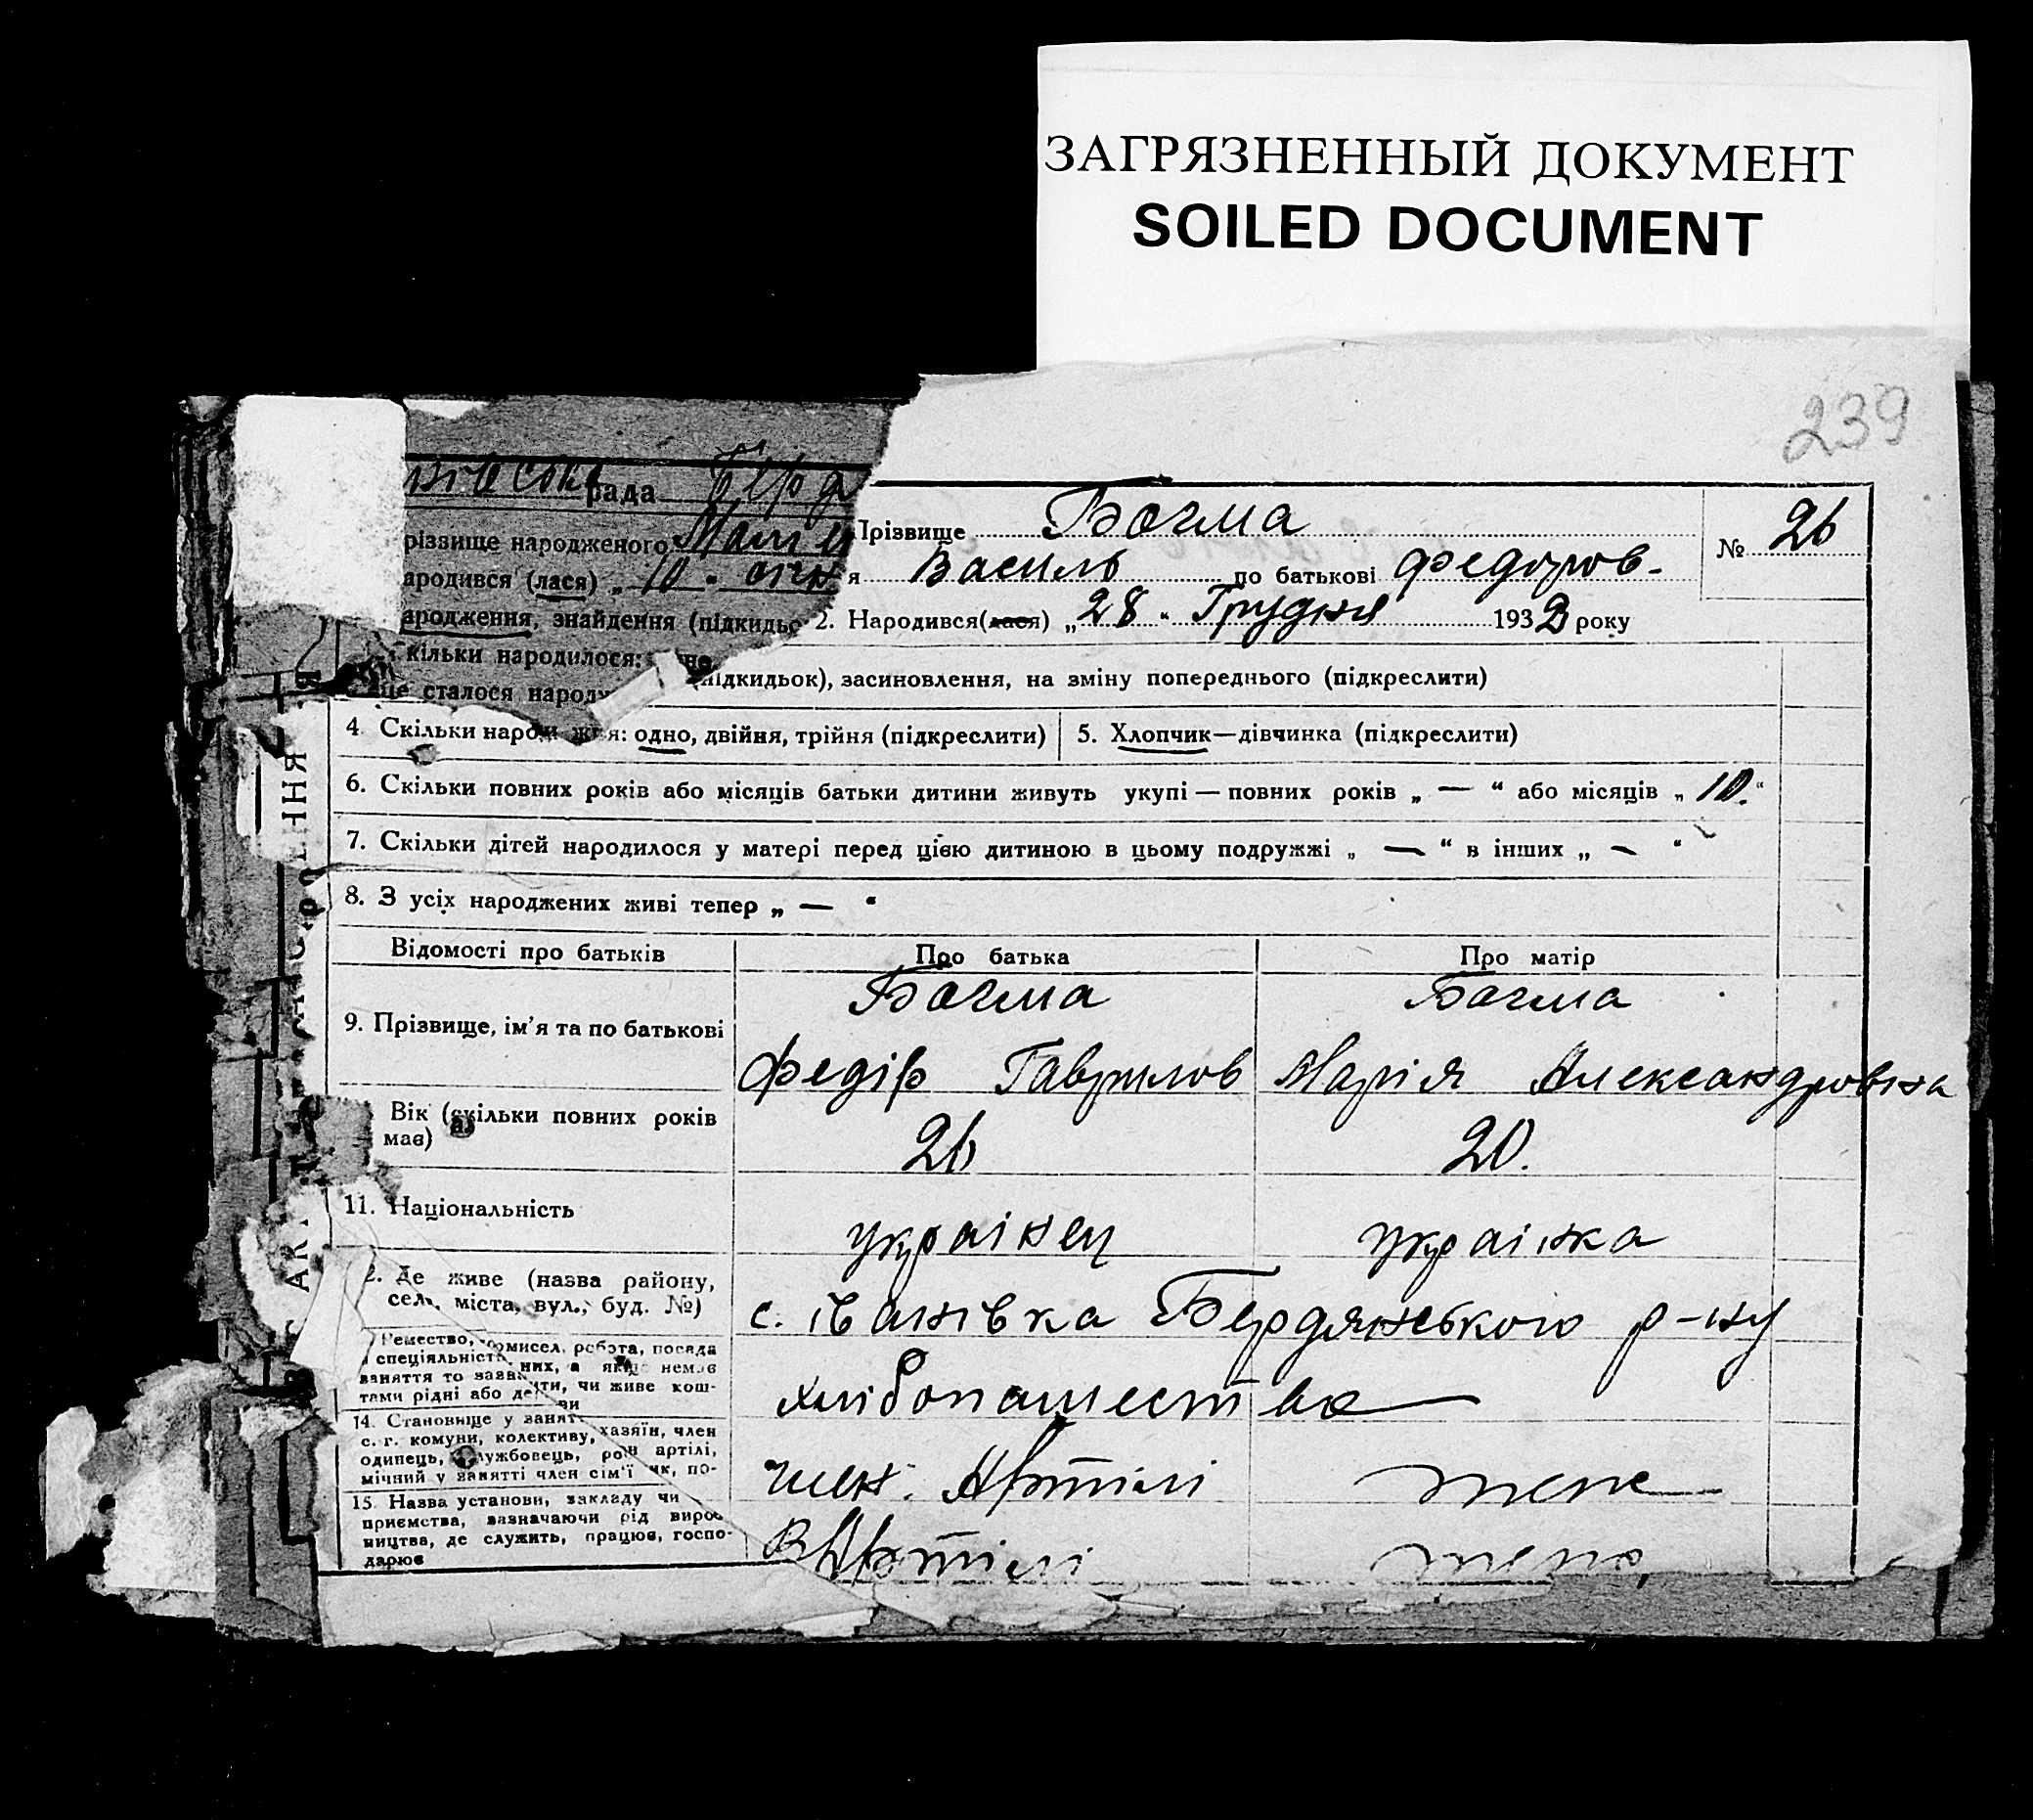 ЗАГРЯЗНЕННЫЙ ДОКУМЕНТ
SOILED DOCUMENT
239
рада Берд
різвище народженого
ародився (лася) „ 10 "
ародження, знайдення (підкидьо
кільки народилося:
це сталося народ
Прізвище Бачма № 26
я Василь по батькові Федоров-
2. Народився(лася) „ 28 " Грудня 1932 року
(підкидьок), засиновлення, на зміну попереднього (підкреслити)
4. Скільки народи жня: одно, двійня, трійня (підкреслити) 5. Хлопчик—дівчинка (підкреслити)
6. Скільки повних років або місяців батьки дитини живуть укупі — повних років „ — “ або місяців „ 10. “
7. Скільки дітей народилося у матері перед цією дитиною в цьому подружжі „ — “ в інших „ — “
8. З усіх народжених живі тепер „ — “
Відомості про батьків Про батька Про матір
9. Прізвище, ім’я та по батькові Бачма Бачма
Федір Гаврилов Марія Александровна
Вік (скільки повних років мав) 26 20.
11. Національність українец українка
2. Де живе (назва району,
села, міста, вул., буд. №) с. Іванівка Бердянського р-ну
Ремество, промисел, робота, посада
спеціяльність них, а якщо немає
заняття то зазна ити, чи живе кош-
тами рідні або де ви
хлібопашество
14. Становище у занят
с. г. комуни, колективу, хазяїн, член
одинець, службовець, роб артілі,
мічний у занятті член сім’ї ик, по-
член. Артілі
15. Назва установи, закладу чи
приємства, зазначаючи рід вироб
ництва, де служить, працює, госпо-
дарює
В Артілі